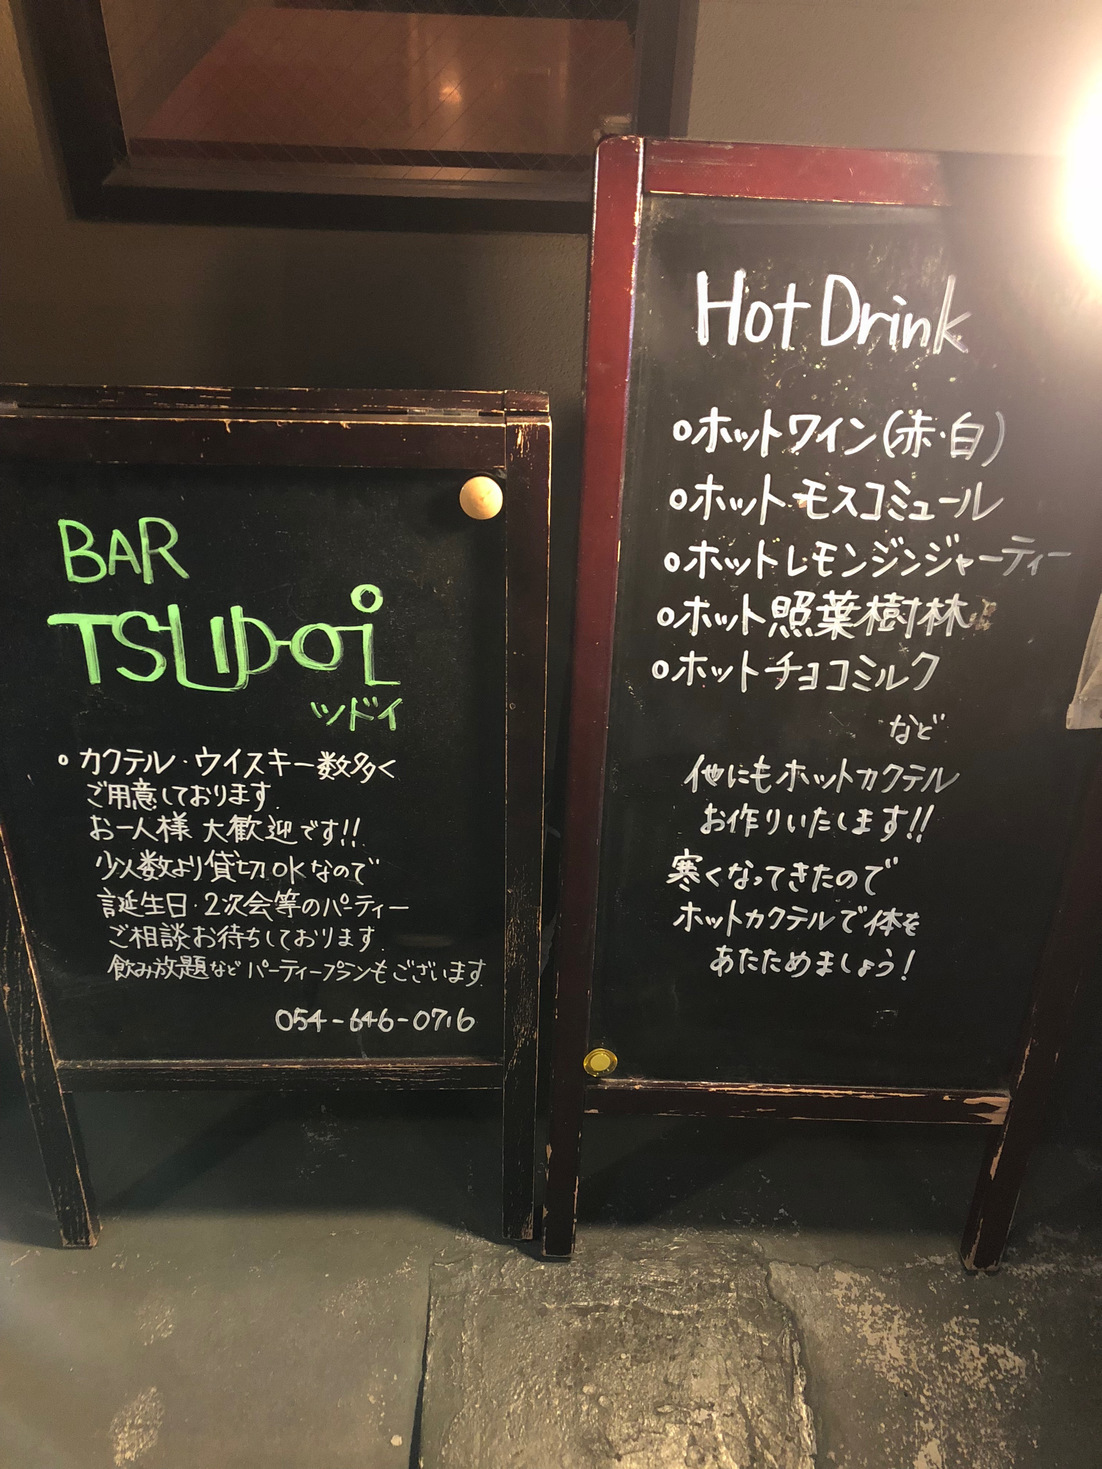 BAR
TSUD-Oi
ツドイ
。カクテル・ウイスキー数多く
ご用意しております.
お一人様 大歓迎です!!
少人数より貸切OKなので
誕生日・2次会等のパーティー
ご相談お待ちしております.
飲み放題など パーティープランもございます.
054-646-0716
Hot Drink
。ホットワイン(赤・白)
。ホットモスコミュール
。ホットレモンジンジャーティー
。ホット照葉樹林
。ホットチョコミルク
など
他にもホットカクテル
お作りいたします!!
寒くなってきたので
ホットカクテルで体を
あたためましょう!